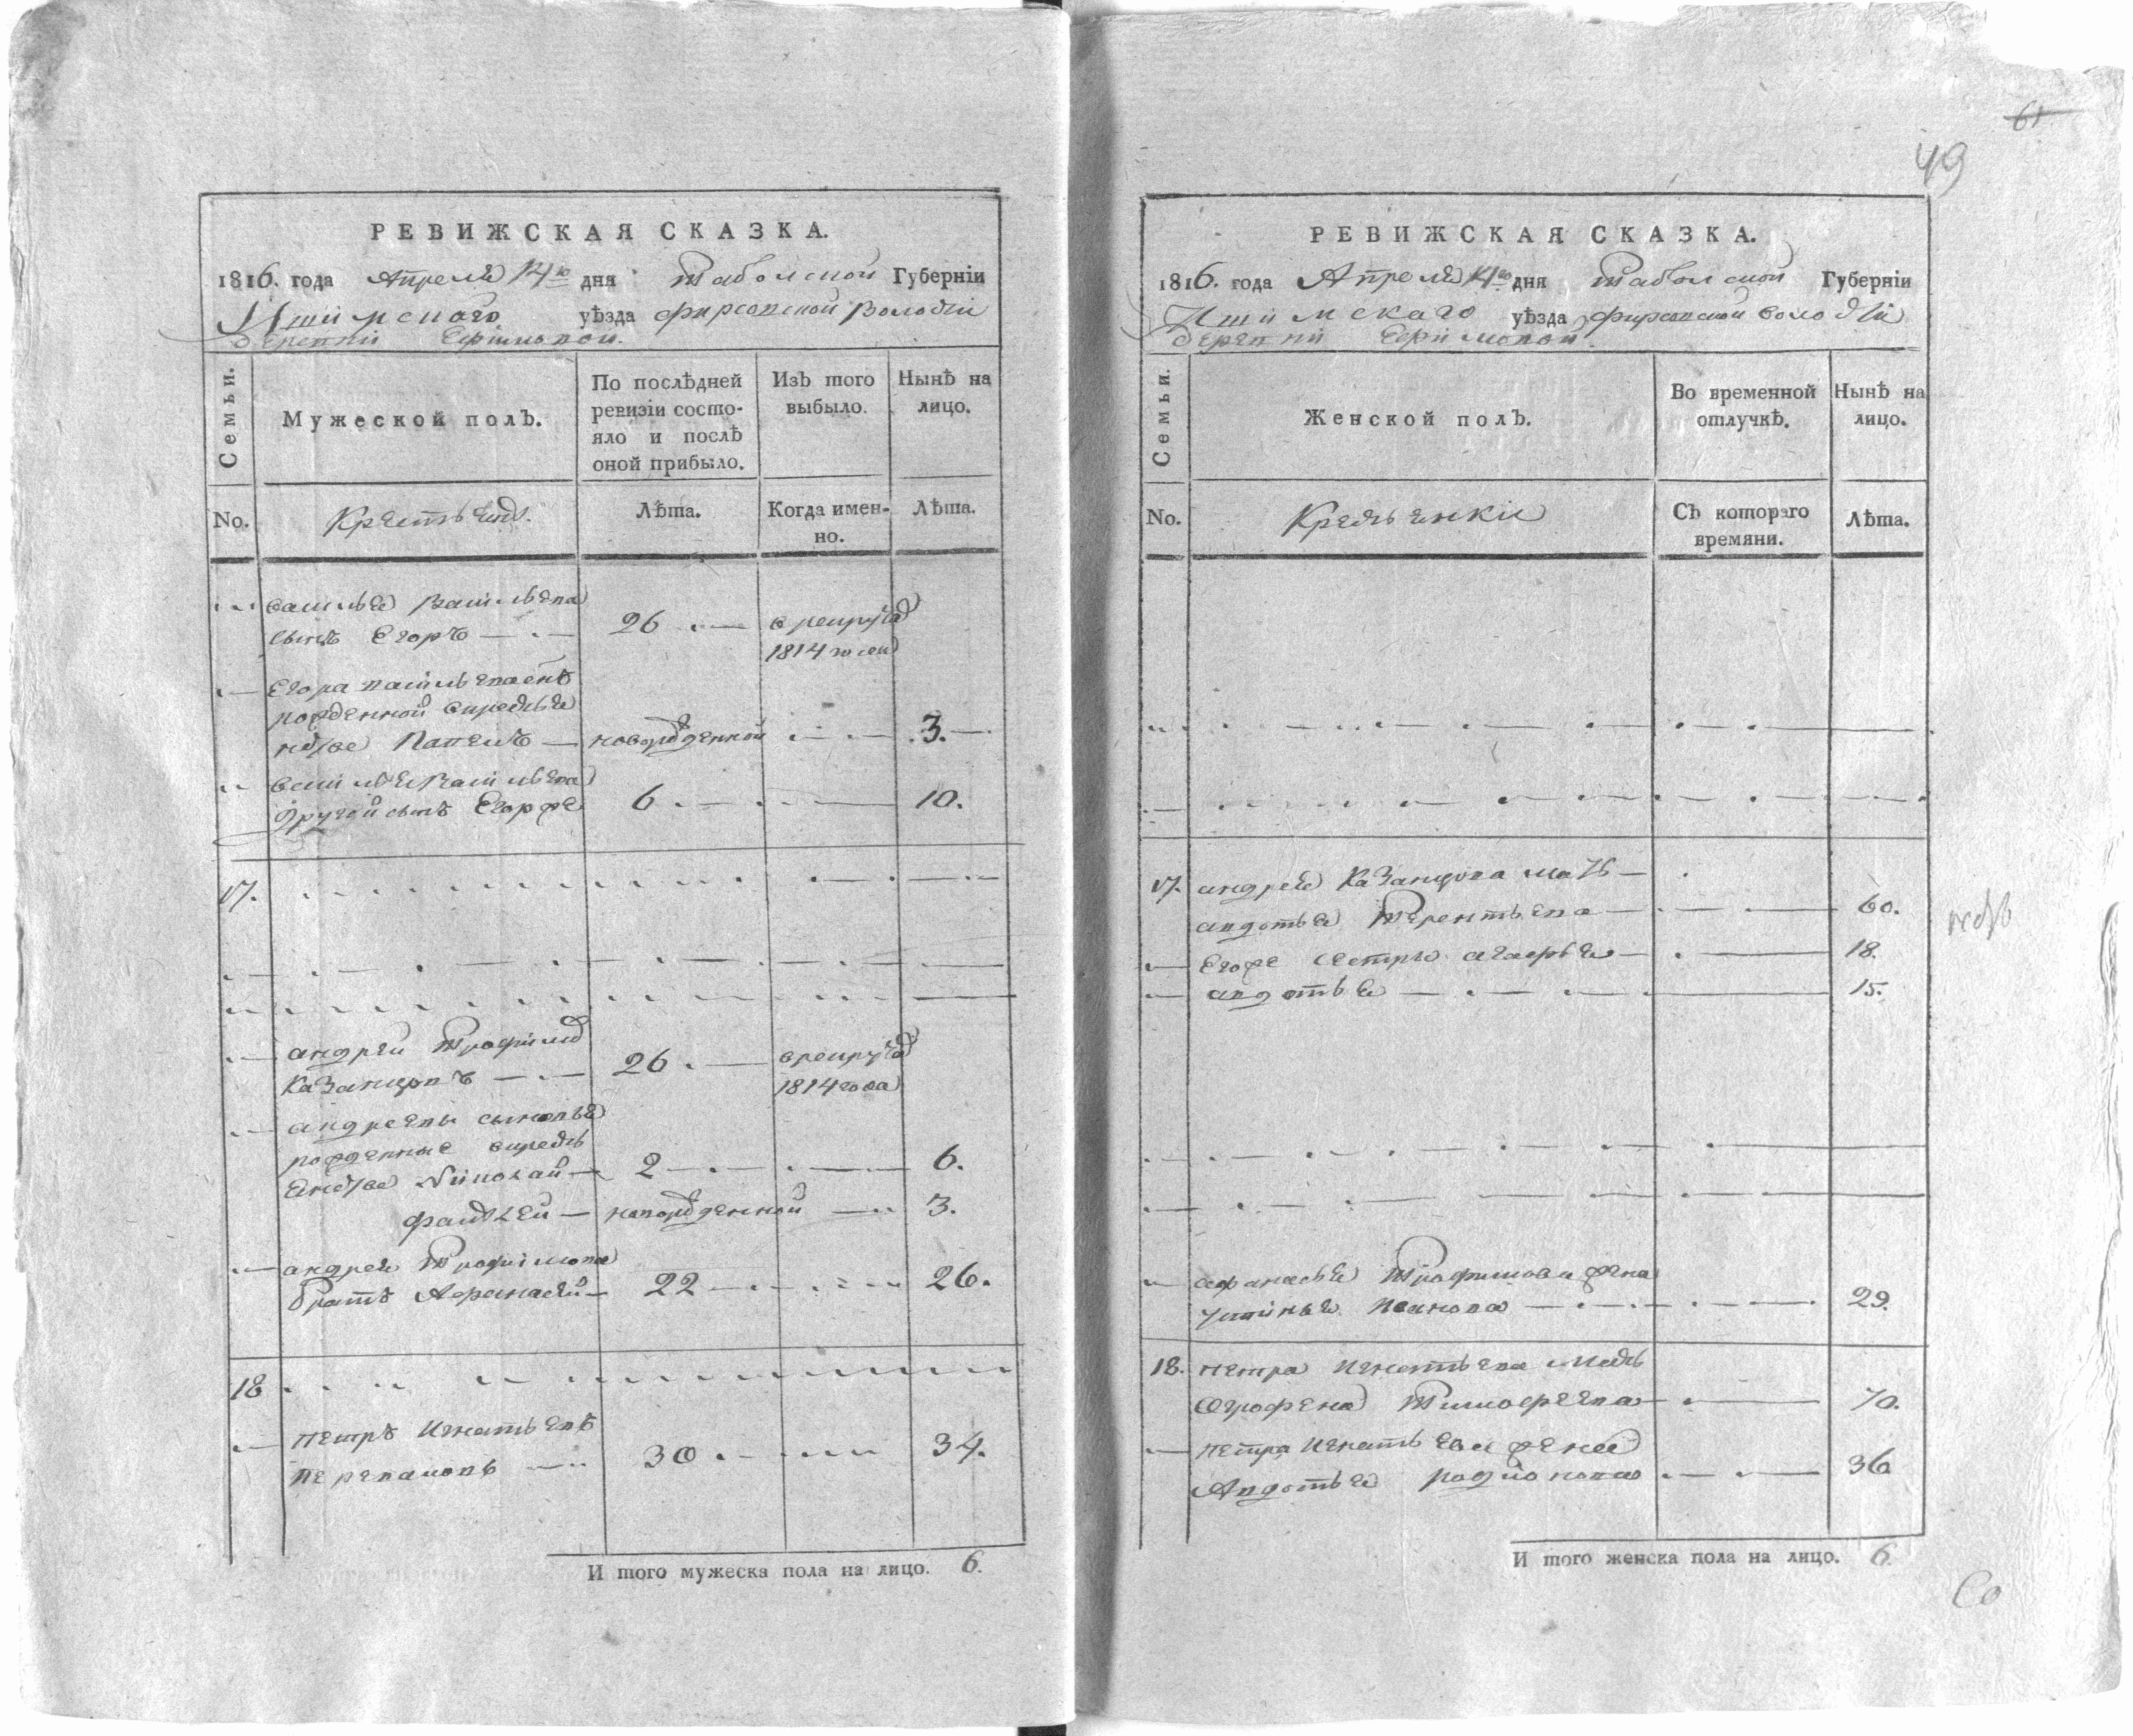 РЕВИЖСКАЯ СКАЗКА.
1816. года Апреля 14го дня Тобольской Губерніи
Ишимского уѣзда фирсовской волости
деревни
Семьи.
Мужеской полъ.
По послѣдней ревизіи состо-
яло и послѣ
оной прибыло.
Изъ того
выбыло.
Нынѣ на
лицо.
No.
Лѣта.
Когда имен-
но.
Лѣта.
василья васильева
сынъ Егоръ 26 в рекруты
1814 года
Егора васильева
рожденной
Павелъ новорожденной 3.
василья васильева
другой сынъ Егорже 6 10.
17.
андрей Трофимов
Казанцовъ 26 в рекруты
1814 года
андреевы сыновья
рожденные
Николай 2 6.
фадѣей новорожденной 3.
андрея Трофимова
братъ Афанасей 22 26.
18
петръ Игнатьевъ
переваловъ 30 34.
И того мужеска пола на лицо. 6.
61
49
РЕВИЖСКАЯ СКАЗКА.
1816. года Апреля 14го дня Тобольской Губерніи
Ишимскаго уѣзда фирсовской волости
деревни
Семьи.
Женской полъ.
Во временной
отлучкѣ.
Нынѣ на
лицо.
No.
Съ котораго
времяни.
Лѣта.
17. андрея Казанцова мать
авдотья Терентьева 60.
Егоже сестры агафья 18.
авдотья 15.
афанасья Трофимова жена
устинья Иванова 29.
18. петра Игнатьева мать
Огрофена Тимофеева 70.
петра Игнатьева жена
Авдотья родионова 36
И того женска пола на лицо. 6.
Со